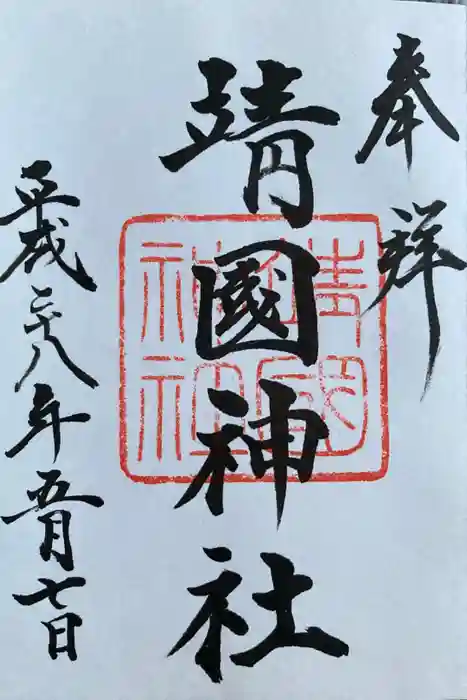 奉拝
靖國神社
平成二十八年五月七日
靖國神社